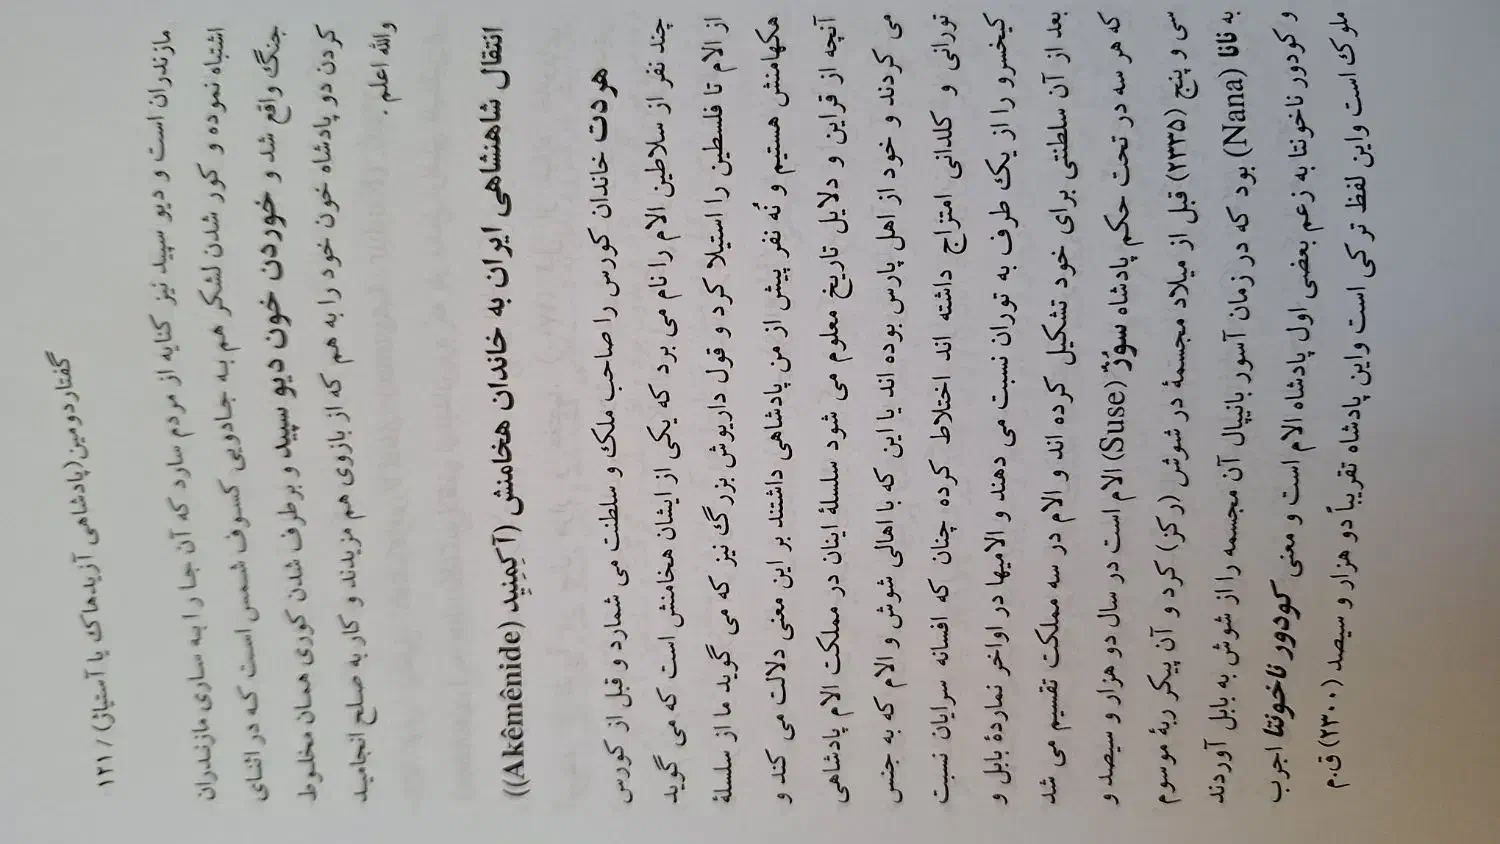 گفتار دومین (پادشاهی آژیدهاک یا آستیاژ) / ۱۲۱
مازندران است و دیو سپید نیز کنایه از مردم سارد که آن جا را به ساری مازندران
اشتباه نموده و کور شدن لشکر هم به جادویی کسوف شمس است که در اثنای
جنگ واقع شد و خوردن خون دیو سپید و برطرف شدن کوری همان مخلوط
کردن دو پادشاه خون خود را به هم که از بازوی هم مزیدند و کار به صلح انجامید
والله اعلم.
انتقال شاهنشاهی ایران به خاندان هخامنش (آکِمِنِید (Akêmênide))
هردت خاندان کورس را صاحب ملک و سلطنت می شمارد و قبل از کورس
چند نفر از سلاطین الام را نام می برد که یکی از ایشان هخامنش است که می گوید
از الام تا فلسطین را استیلا کرد و قول داریوش بزرگ نیز که می گوید ما از سلسلهٔ
هکهامنش هستیم و نُه نفر پیش از من پادشاهی داشتند بر این معنی دلالت می کند و
آنچه از قراین و دلایل تاریخ معلوم می شود سلسلهٔ اینان در مملکت الام پادشاهی
می کردند و خود از اهل پارس بوده اند یا این که با اهالی شوش و الام که به جنس
تورانی و کلدانی امتزاج داشته اند اختلاط کرده چنان که افسانه سرایان نسبت
کیخسرو را از یک طرف به توران نسبت می دهند و الامیها در اواخر نماردهٔ بابل و
بعد از آن سلطنتی برای خود تشکیل کرده اند و الام در سه مملکت تقسیم می شد
که هر سه در تحت حکم پادشاه سوُزْ (Suse) الام است در سال دو هزار و سیصد و
سی و پنج (۲۳۳۵) قبل از میلاد مجسمهٔ در شوش (رکز) کرد و آن پیکر ربهٔ موسوم
به نانا (Nana) بود که در زمان آسور بانیپال آن مجسمه را از شوش به بابل آوردند
و کودور ناخونتا به زعم بعضی اول پادشاه الام است و معنی کودور ناخونتا اجرب
ملوک است واین لفظ ترکی است واین پادشاه تقریباً دو هزار و سیصد (۲۳۰۰) ق.م